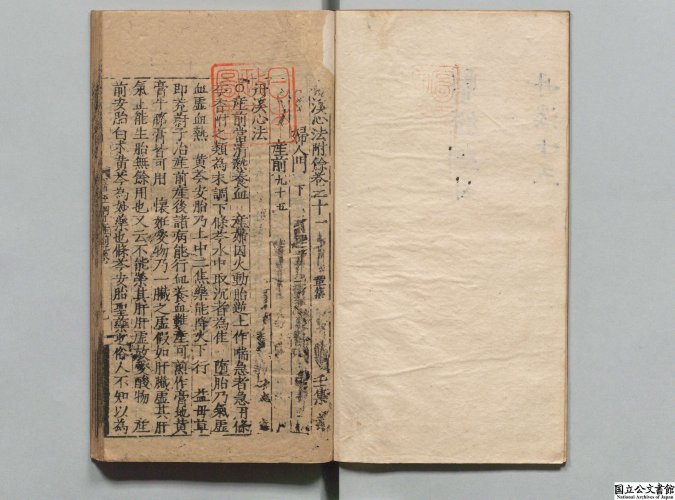 丹溪心法附餘卷之二十一 壬集
婦人門下
産前九十五
丹溪心法
産前當清熱養血 産前因火動胎逆上作喘急者急用條
芩香附之類為末調下條芩水中取沉者為佳 墮胎乃氣虛
血虛血熱 黄芩安胎乃上中二焦藥能降火下行 益母草
即茺蔚子治産前産後諸病能行血養血難産可煎作膏地黄
膏牛膝膏皆可用 懐妊愛物乃一臟之虛假如肝臟虛其肝
氣止能生胎無餘用也又云不能榮其肝肝虛故愛酸物 産
前安胎白术黄芩為妙藥也條芩安胎聖藥也俗人不知以為
国立公文書館
National Archives of Japan